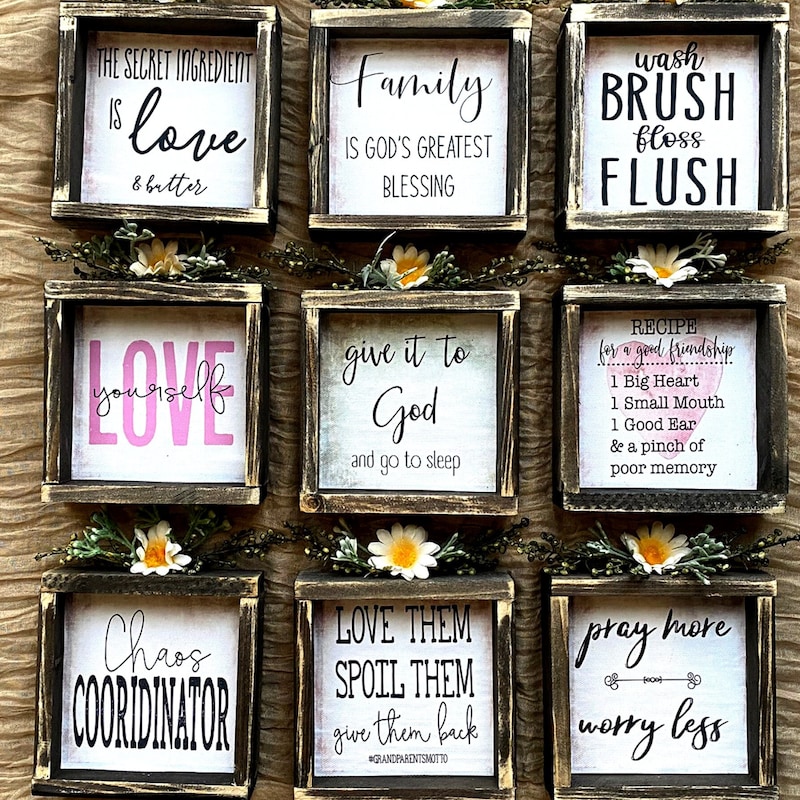 THE SECRET INGREDIENT
IS love
& butter
Family
IS GOD'S GREATEST
BLESSING
wash
BRUSH
floss
FLUSH
LOVE
yourself
give it to
God
and go to sleep
RECIPE
for a good friendship
1 Big Heart
1 Small Mouth
1 Good Ear
& a pinch of
poor memory
Chaos
COORIDINATOR
LOVE THEM
SPOIL THEM
give them back
#GRANDPARENTSMOTTO
pray more
worry less